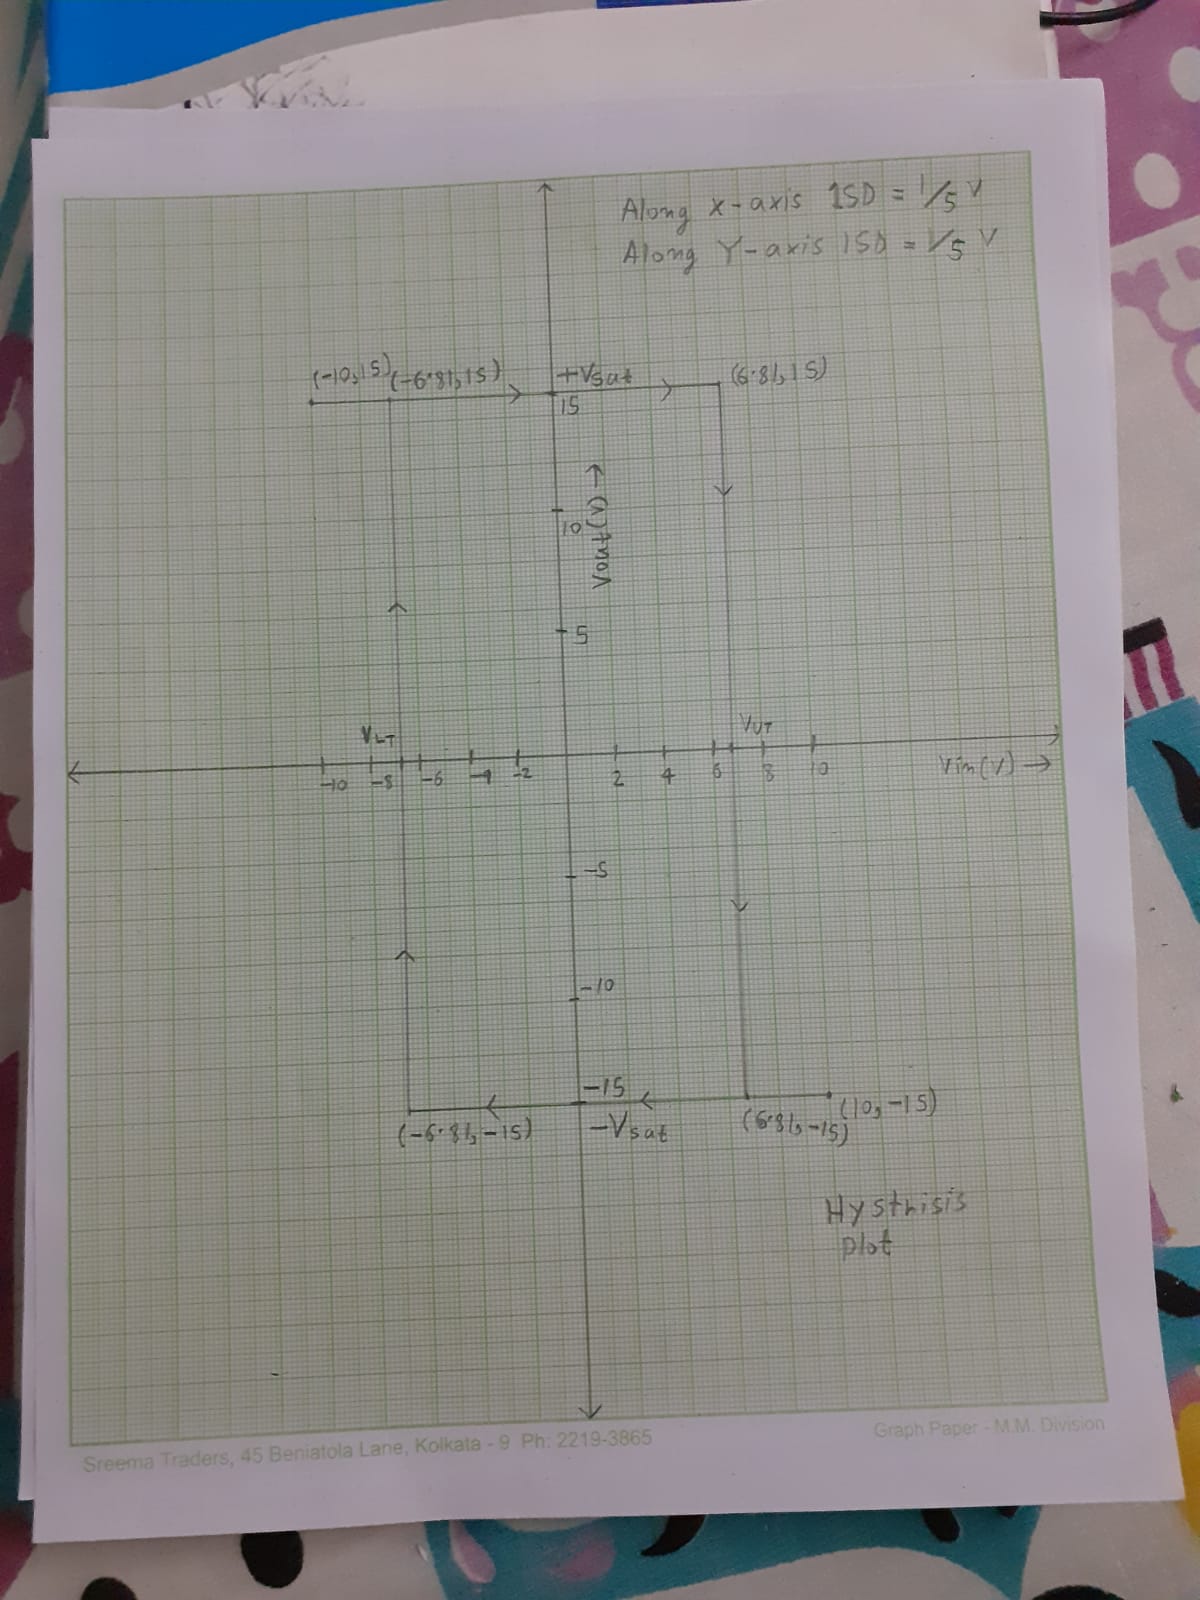 Along x-axis 1SD = 1/5 V
Along Y-axis 1SD = 1/5 V
(-10,15) (-6.81,15) +Vsat (6.81,15)
15
10
Vout(V) →
5
VLT VUT
-10 -8 -6 -4 -2 2 4 6 8 10 Vin(V) →
-5
-10
-15
(-6.81,-15) -Vsat (6.81,-15) (10,-15)
Hysthisis
plot
Sreema Traders, 45 Beniatola Lane, Kolkata - 9 Ph: 2219-3865
Graph Paper - M.M. Division